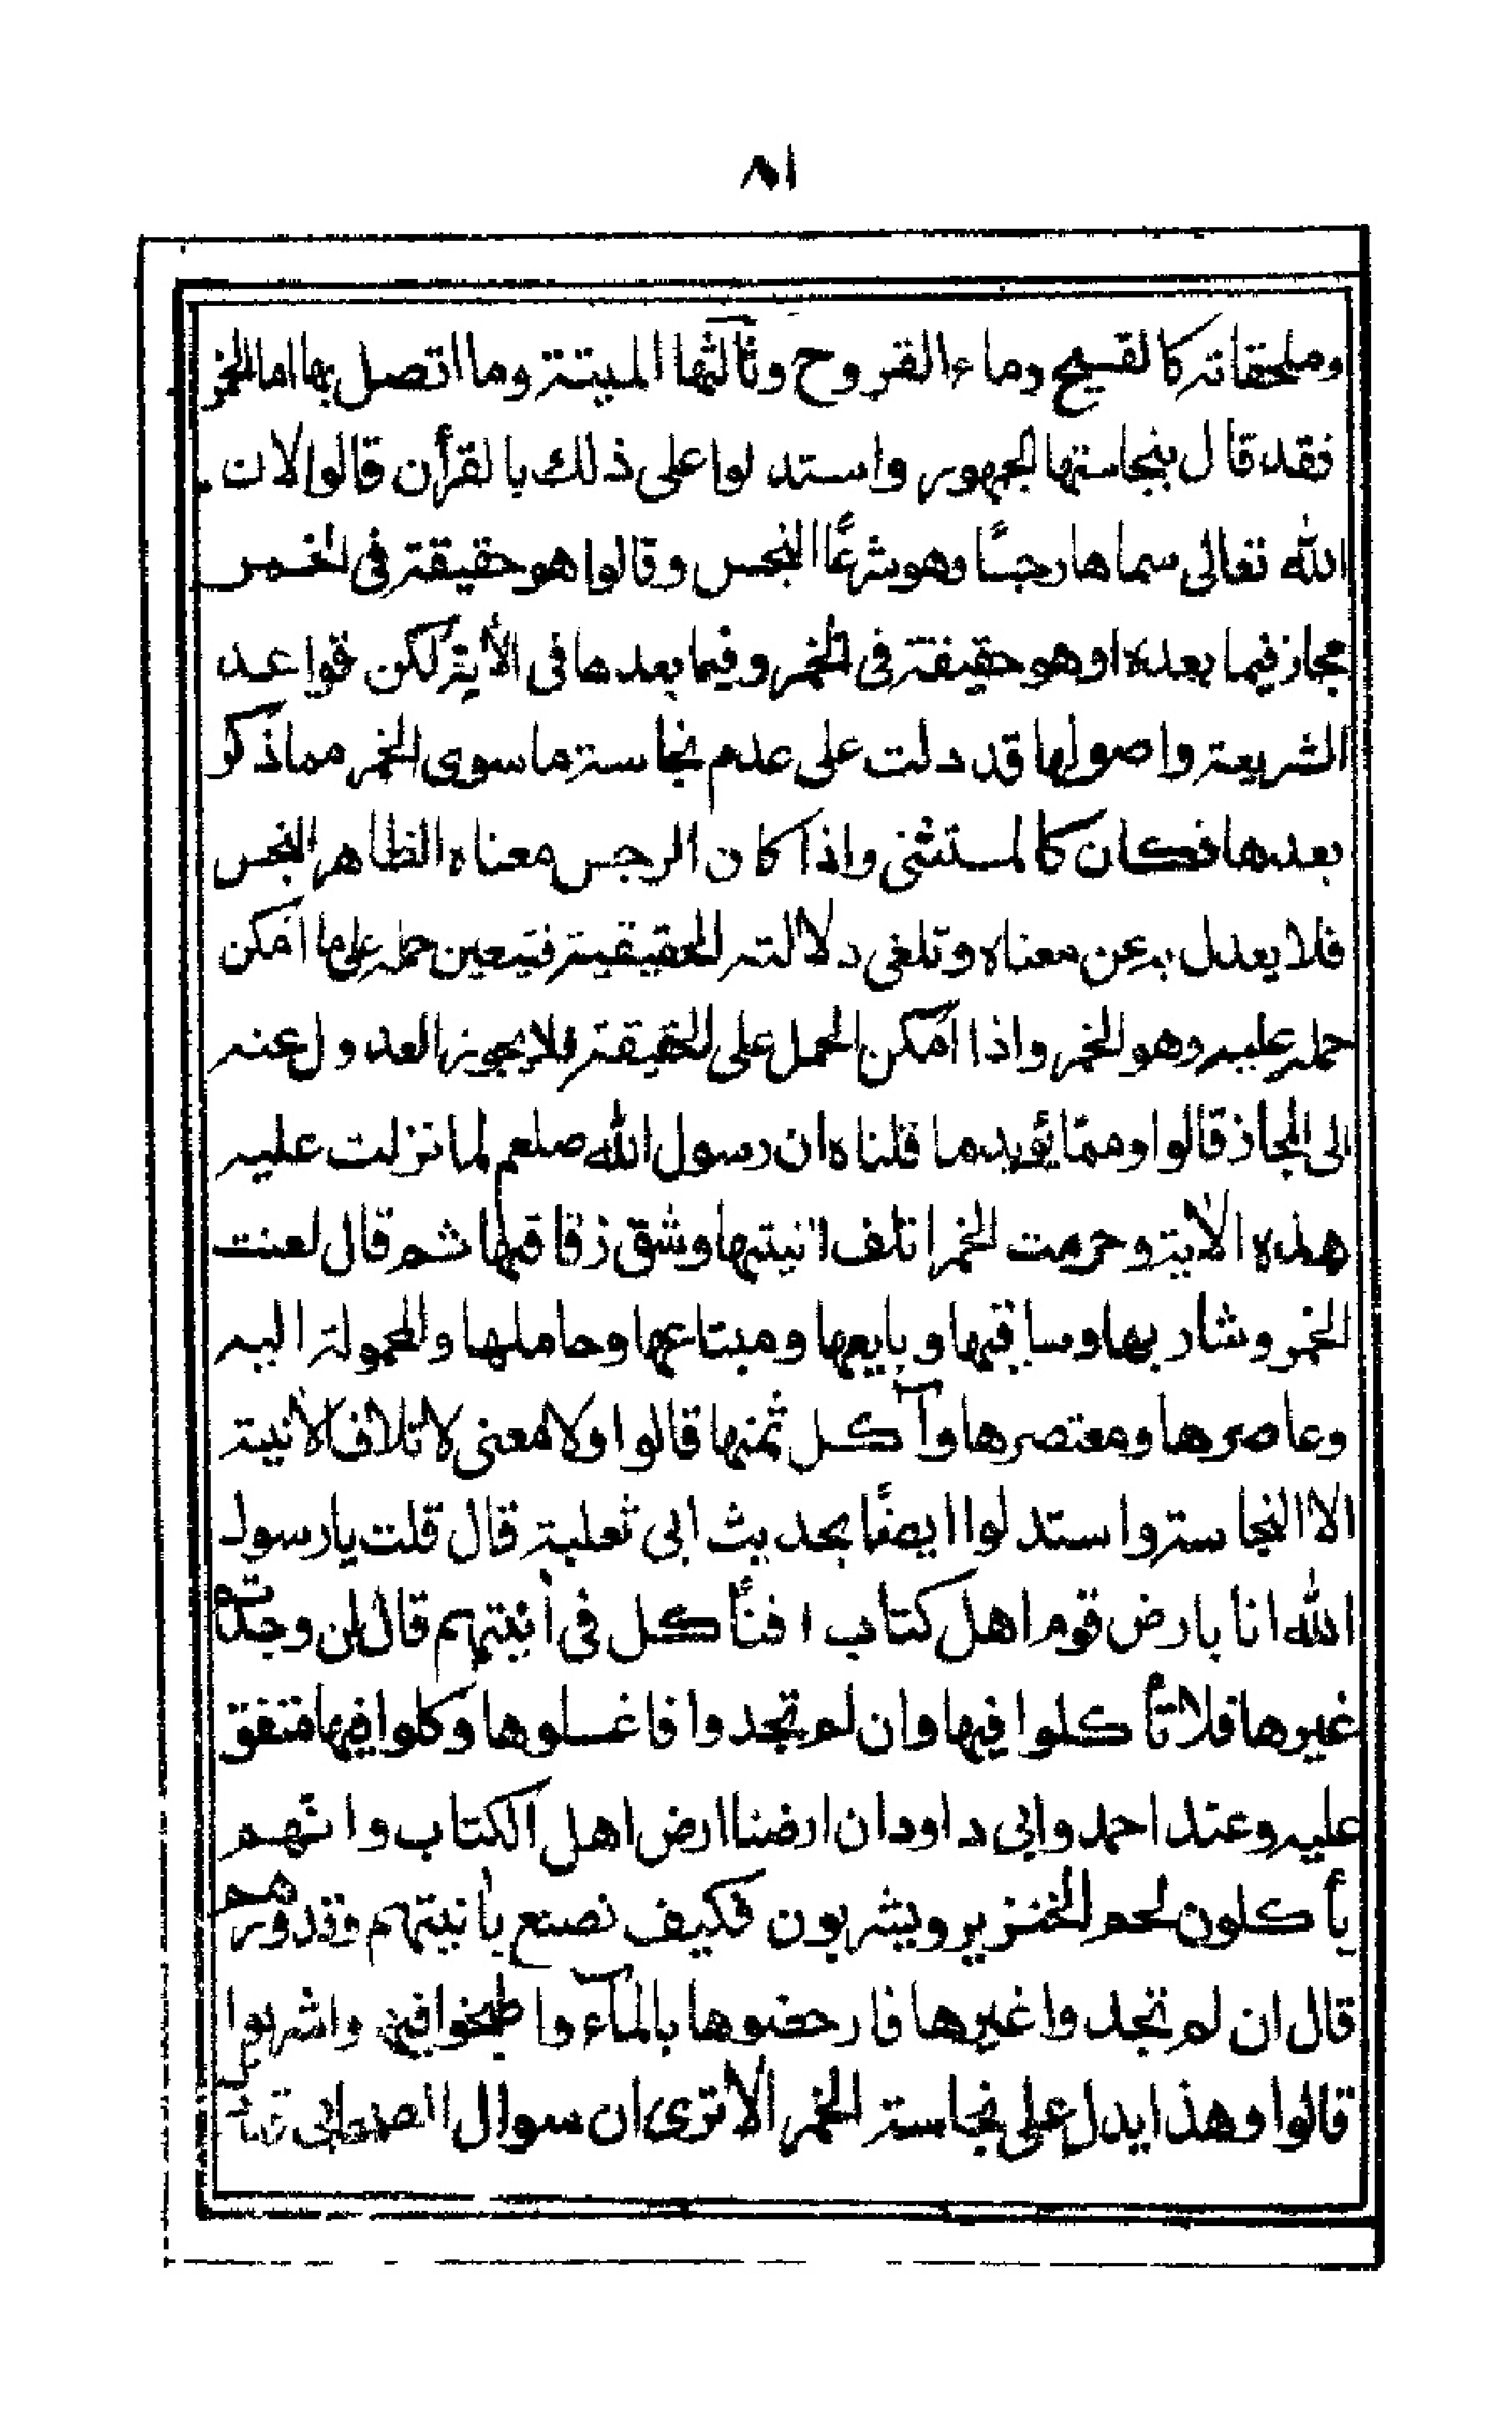 ٨١
او ملحقاته كالقيح وماء القروح وثالثها الميتة وما اتصل بها اما الخمر
فقد قال بنجاستها الجمهور واستدلوا على ذلك بالقرأن قالوا لان
الله تعالى سماها رجسًا وهو شرعًا النجس وقالوا هو حقيقة فى الخمر
مجاز فيما بعده او هو حقيقة فى الخمر و فيما بعدها فى الأية لكن قواعد
الشريعة واصولها قد دلت على عدم نجاسة ما سوى الخمر مما ذكر
بعدها فكان كالمستثنى واذا كان الرجس معناه الظاهر النجس
فلا يعدل به عن معناه وتلغى دلالته الحقيقية فيتعين حمله على ما امكن
حمله عليه وهو الخمر واذا امكن الحمل على الحقيقة فلا يجوز العدول عنه
الى المجاز قالوا ومما يؤيد ما قلناه ان رسول الله صلعم لما نزلت عليه
هذه الأية وحرمت الخمر اتلف انيتها وشق زقاقها ثم قال لعنت
الخمر وشاربها وساقيها وبايعها ومبتاعها وحاملها والمحمولة اليه
وعاصرها ومعتصرها وآكل ثمنها قالوا ولا معنى لاتلاف الأنية
الا النجاسة واستدلوا ايضًا بحديث ابى ثعلبة قال قلت يا رسول
الله انا بارض قوم اهل كتاب افنأكل فى أنيتهم قال ان وجدتم
غيرها فلا تأكلوا فيها وان لم تجدوا فاغسلوها وكلوا فيها متفق
عليه وعند احمد وابى داود ان ارضنا ارض اهل الكتاب وانهم
يأكلون لحم الخنزير ويشربون فكيف نصنع بأنيتهم وقدورهم
قال ان لم تجدوا غيرها فارحضوها بالمآء واطبخوا فيها واشربوا
قالوا وهذا يدل على نجاسة الخمر الا ترى ان سوال الصحابى